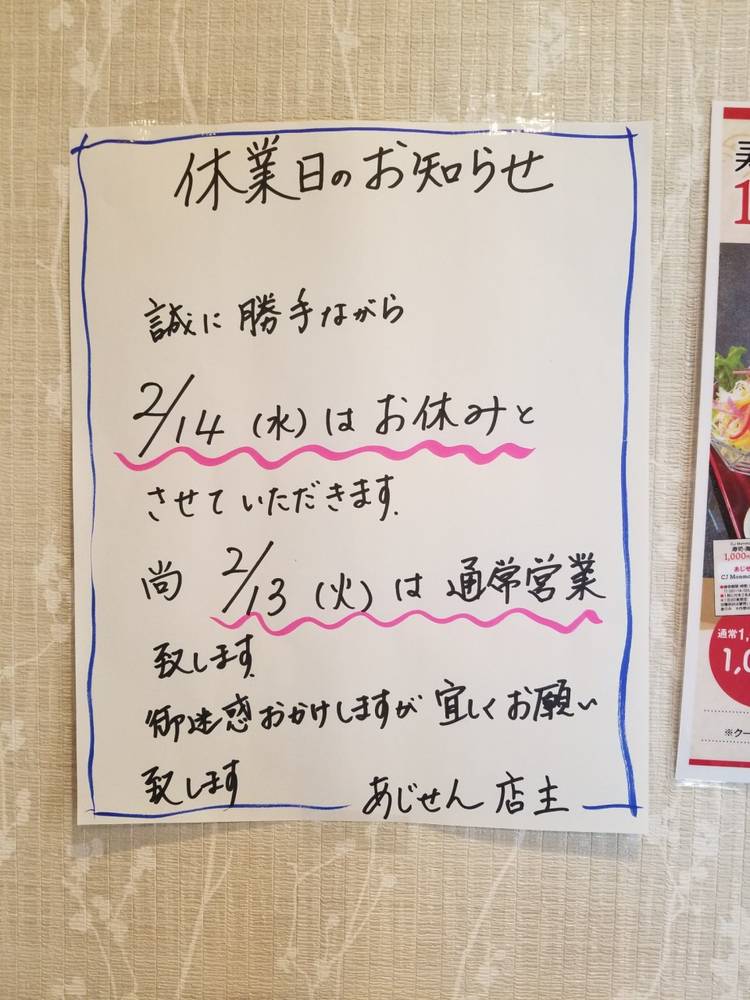 休業日のお知らせ
誠に勝手ながら
2/14(水)はお休みと
させていただきます.
尚 2/13(火)は通常営業
致します.
御迷惑おかけしますが宜しくお願い
致します
あじせん 店主
1,000
あじせ
CJ Monma
通常1,
1,0
※クー